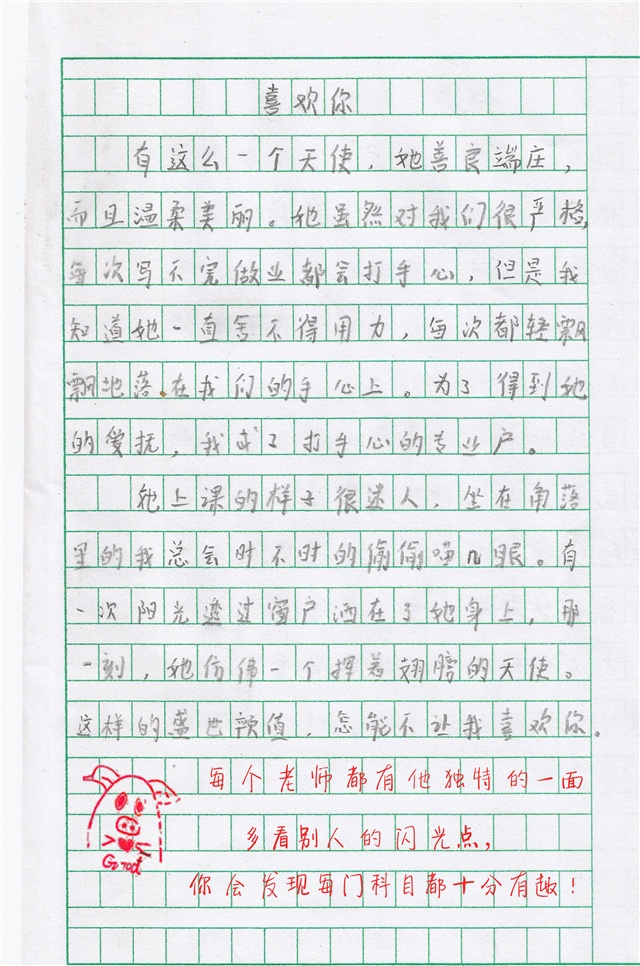 喜欢你
有这么一个天使，她善良端庄，
而且温柔美丽。她虽然对我们很严格，
每次写不完做业都会打手心，但是我
知道她一直舍不得用力，每次都轻飘
飘地落在我们的手心上。为了得到她
的爱抚，我成了打手心的专业户。
她上课的样子很迷人，坐在角落
里的我总会时不时的偷偷喵几眼。有
一次阳光透过窗户洒在了她身上，那
一刻，她仿佛一个挥着翅膀的天使。
这样的盛世颜值，怎能不让我喜欢你。
每个老师都有他独特的一面
多看别人的闪光点，
你会发现每门科目都十分有趣！
Good